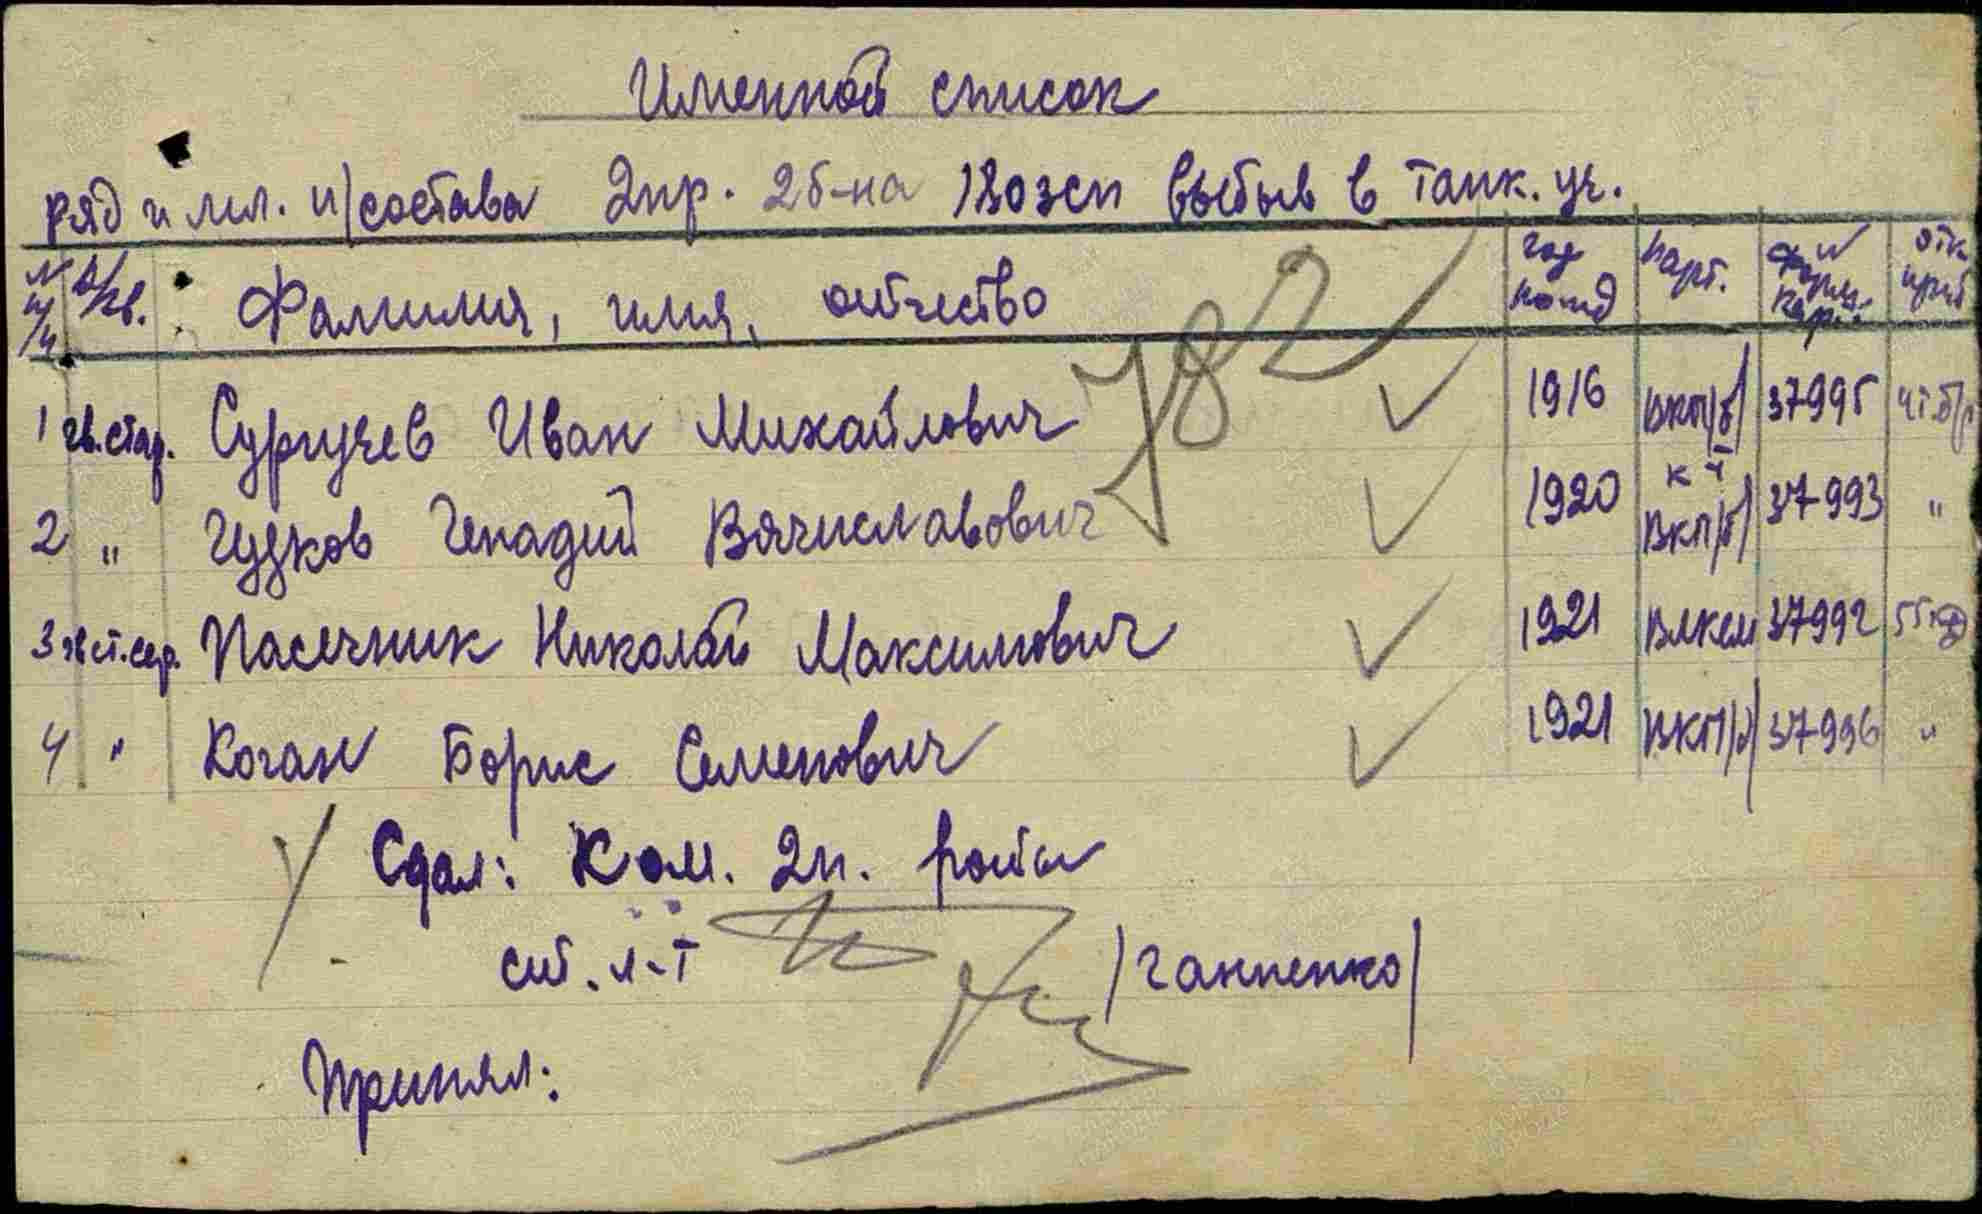 Именной список
ряд и мл. н/состава 2пр. 2б-на 180зсп выбыв в танк. уч.
N п/п в/зв. Фамилия, имя, отчество год рожд парт. N форм. кар. отк. приб
782
1 гв.стар. Сургучев Иван Михайлович 1916 ВКП/б/ 37995 4т.бр
2 " Гудков Генадий Вячиславович 1920 к-т ВКП/б/ 37993 "
3 гв ст.сер. Пасечник Николай Максимович 1921 ВЛКСМ 37992
4 " Коган Борис Семенович 1921 ВКП/б/ 37996 "
Сдал: Ком. 2п. роты
ст. л-т /Ганненко/
Принял: